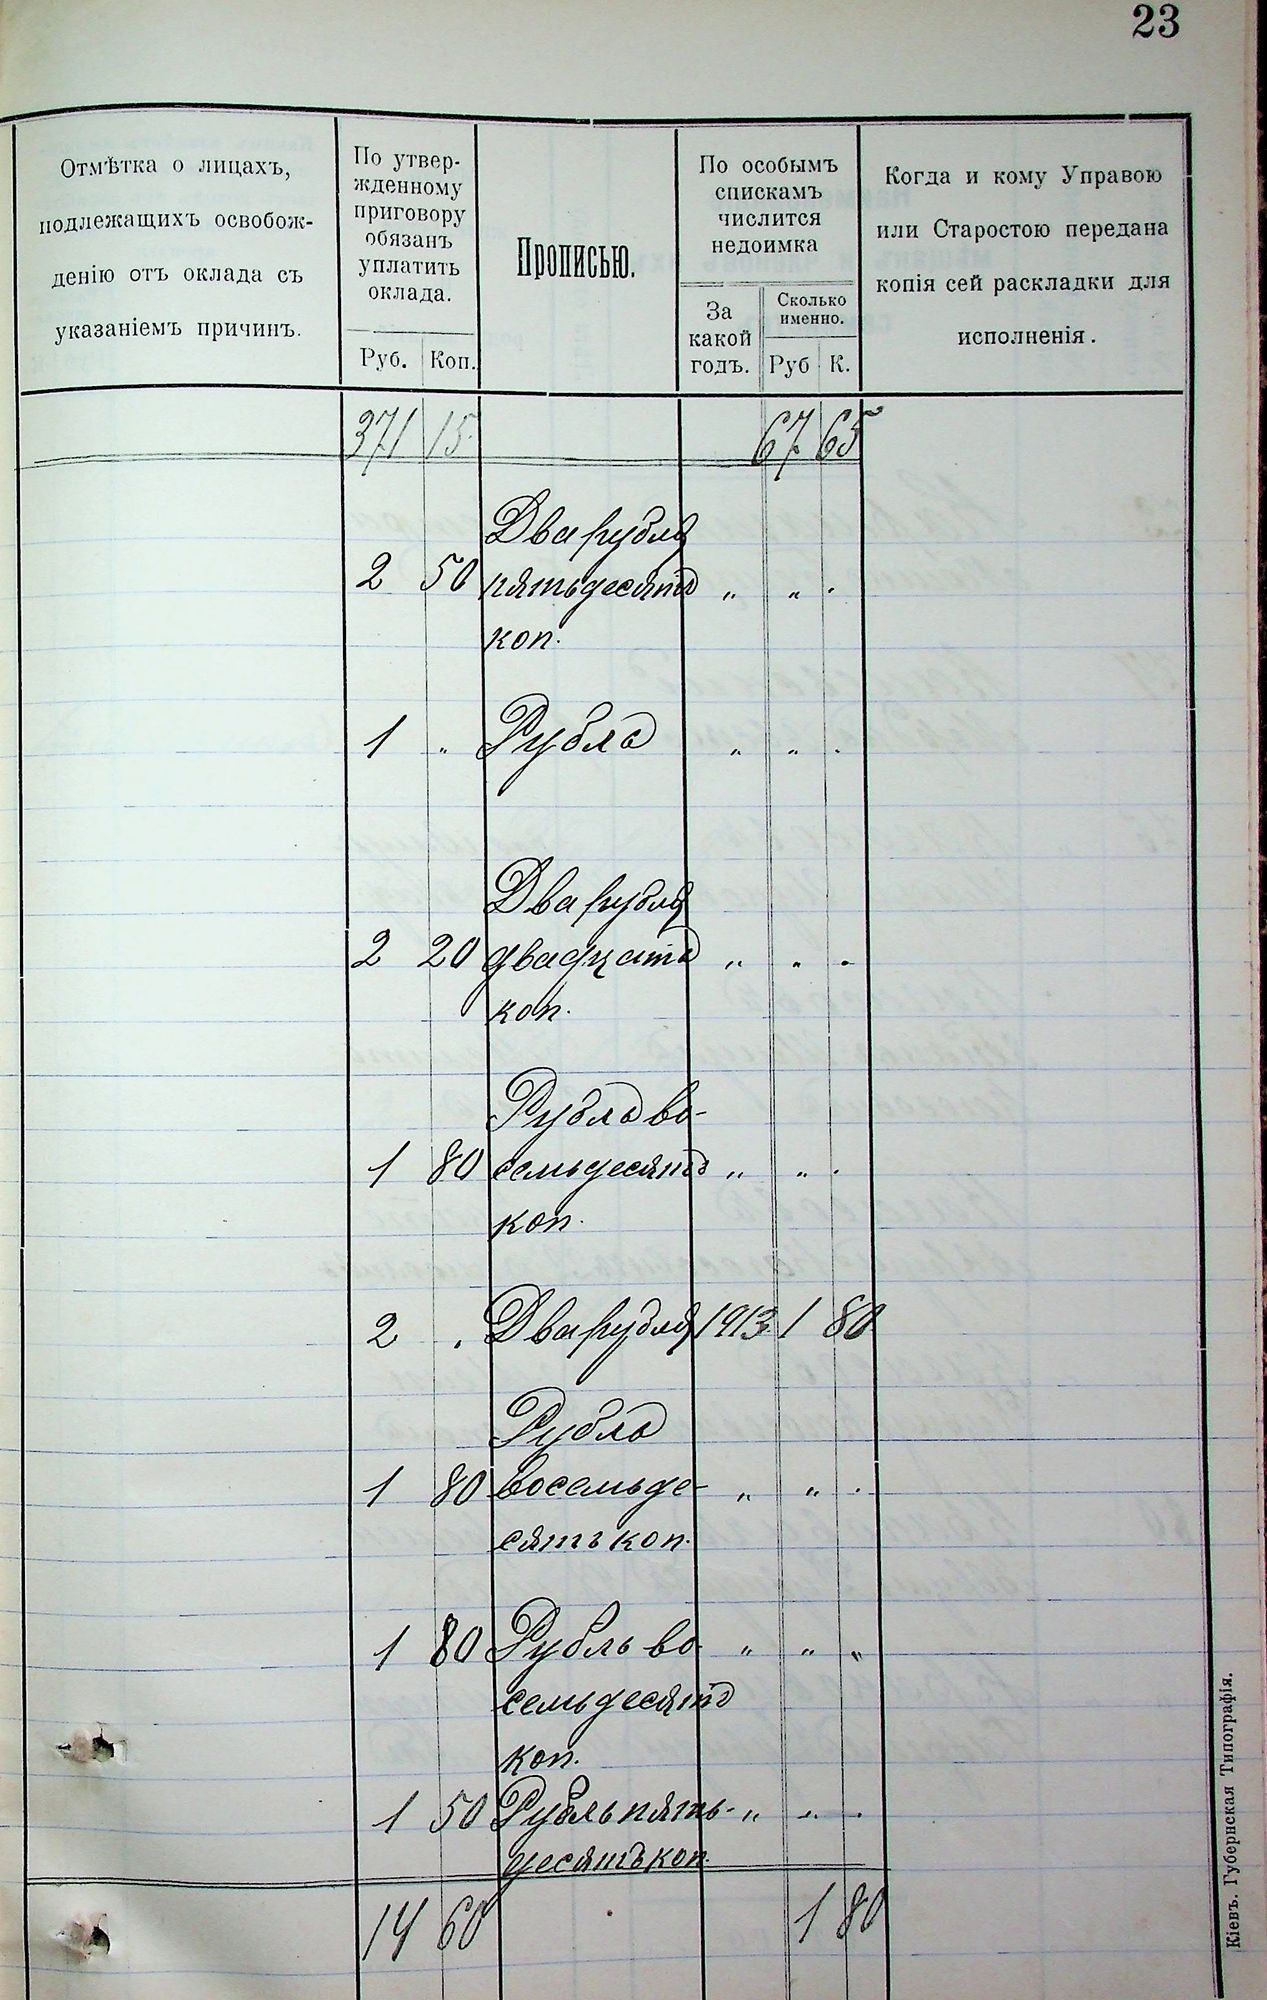 23
Отмѣтка о лицахъ,
подлежащихъ освобож-
денію отъ оклада съ
указаніемъ причинъ.
По утвер-
жденному
приговору
обязанъ
уплатить
оклада.
Руб. Коп.
Прописью.
По особымъ
спискамъ
числится
недоимка
За
какой
годъ.
Сколько
именно.
Руб К.
Когда и кому Управою
или Старостою передана
копія сей раскладки для
исполненія.
371 15 67 65
Два рубля
2 50 пятьдесятъ „ „ .
коп.
1 „ Рубль „ „ .
Два рубля
2 20 двадцать „ „ .
коп.
Рубль во-
1 80 семьдесятъ „ „ .
коп.
2 . Два рубля 1913 1 80
Рубль
1 80 восемьде- „ „ .
сятъ коп.
1 80 Рубль во- „ „ „
семьдесятъ
коп.
1 50 Рубль пять- „ „ .
десятъ коп.
14 60 1 80
Кіевъ. Губернская Типографія.